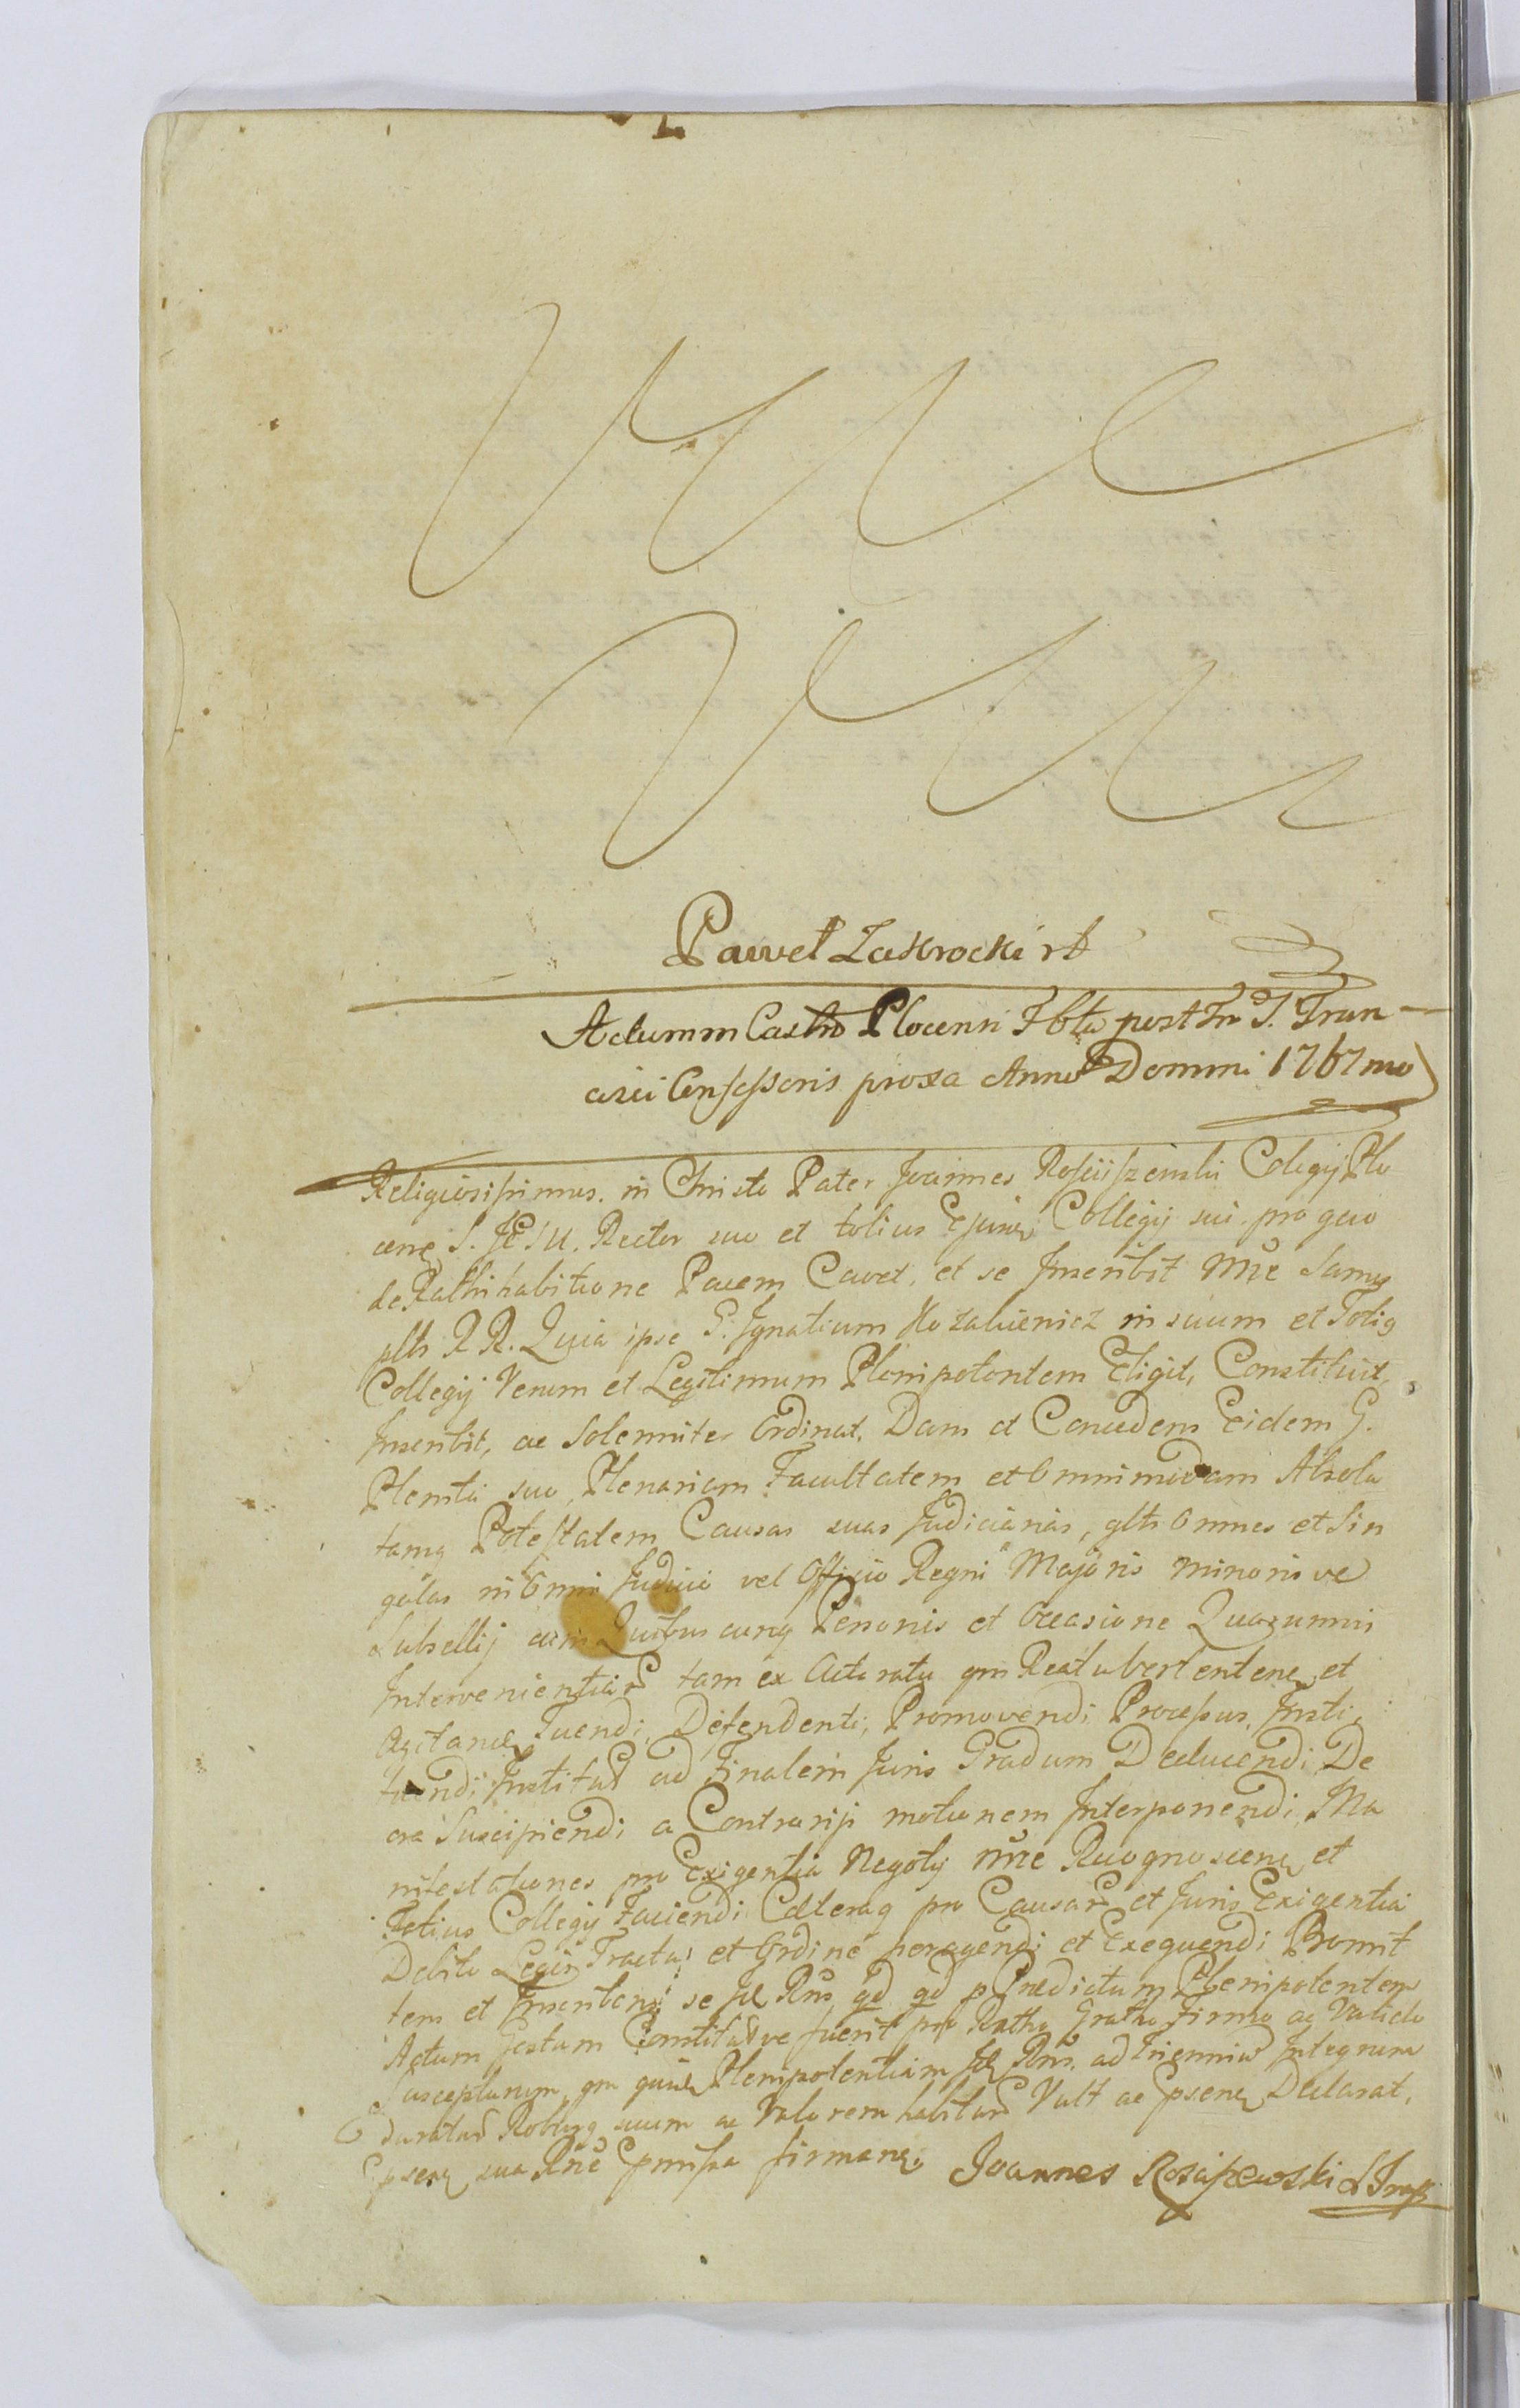 Paweł Zakrocki rt
Actum in Castro Plocensi Fbta post Fm S. Fran
cisci Confessoris proxa Anno Domini 1767mo
Religiosissimus in Christo Pater Joannes Colegij Plo
cens S. JESU. Rector suo et totius Collegij sui pro quo
de Rathihabitione Pacem Cavet, et se Inscribit nne Samus
plts R R. Quia ipse G. Ignatium in suum et Totiq
Collegij Verum et Legitimum Plenipotentem Eligit, Constituit,
Inscribit, ac Solemniter Ordinat. Dans et Concedens Eidem G.
Plenti suo, Plenariam Facultatem et Omnimodam Absolu
tamq Potestatem Causas suas Judiciarias, glts Omnes et Sin
gulas in Omni Judicio vel Officio Regni Majoris minoris ve
Subsellij cum Quibus cunq Personis et Occasione Quarumvis
Intervenientiar tam ex Actoratu qm Reatu vertentene et
Agitane Tuendi, Defendenti, Promovendi Processus, Insti
tuendi Institut ad Finalem Juris Gradum Deducendi De
cre Suscipiendi a Contrarijs motionem Interponendi, Ma
nifestationes pro Exigentia Negotij nne Recognoscene et
Totius Collegij Faciendi Coeteraq pro Causar et Juris Exigentia
Debito Legis Tractu et Ordine peragendi et Exequendi Promit
tem et Inscribens se Rns qd qd p Praedictum Plenipotentem
Actum Gestum Constitut ve fuerit pro Ratho Gratho Firmo ac Valido
Suscepturum qm quid Plenipotentiam Rns. ad Triennium Integrum
duratur Roburq suum ac Valorem habitur Vult ac Epsene Declarat,
Epsene sua Rne firmans. Joannes Rosciszewski